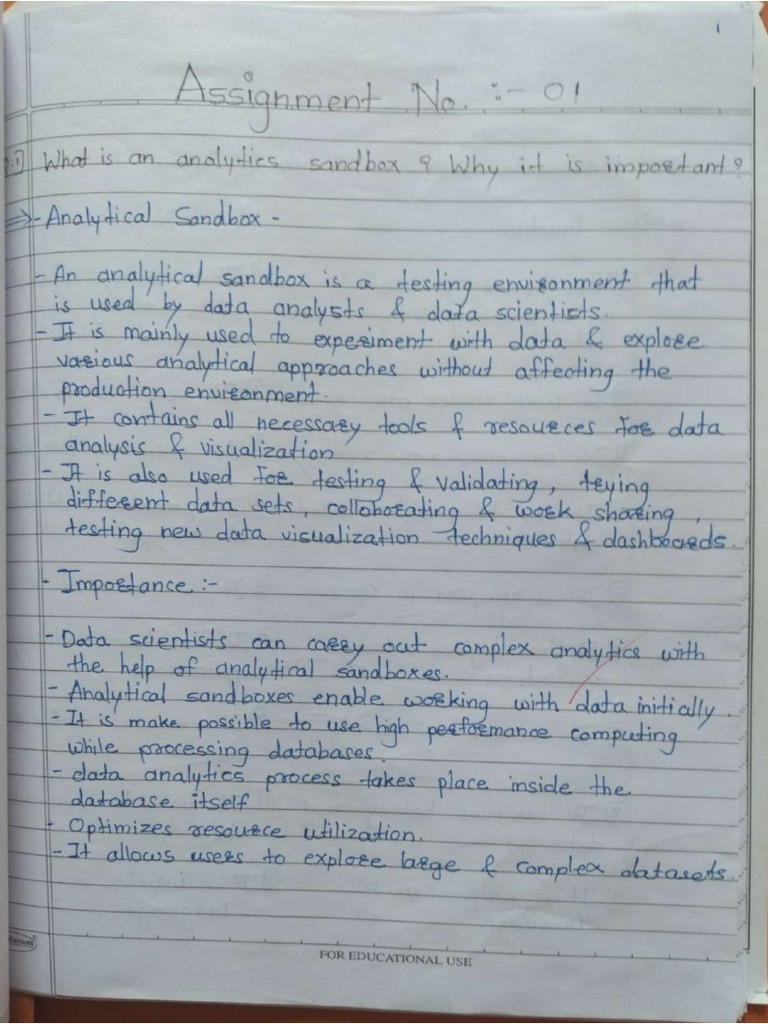 1
Assignment No. :- 01
Q.1) What is an analytics sandbox ? Why it is important ?
⇒ - Analytical Sandbox -
- An analytical sandbox is a testing environment that
is used by data analysts & data scientists.
- It is mainly used to experiment with data & explore
various analytical approaches without affecting the
production environment.
- It contains all necessary tools & resources for data
analysis & visualization
- It is also used for testing & validating, trying
different data sets, colloborating & work sharing,
testing new data visualization techniques & dashboards.
- Importance :-
- Data scientists can carry out complex analytics with
the help of analytical sandboxes.
- Analytical sandboxes enable working with data initially.
- It is make possible to use high performance computing
while processing databases.
- data analytics process takes place inside the
database itself
- Optimizes resource utilization.
- It allows users to explore large & complex datasets.
FOR EDUCATIONAL USE